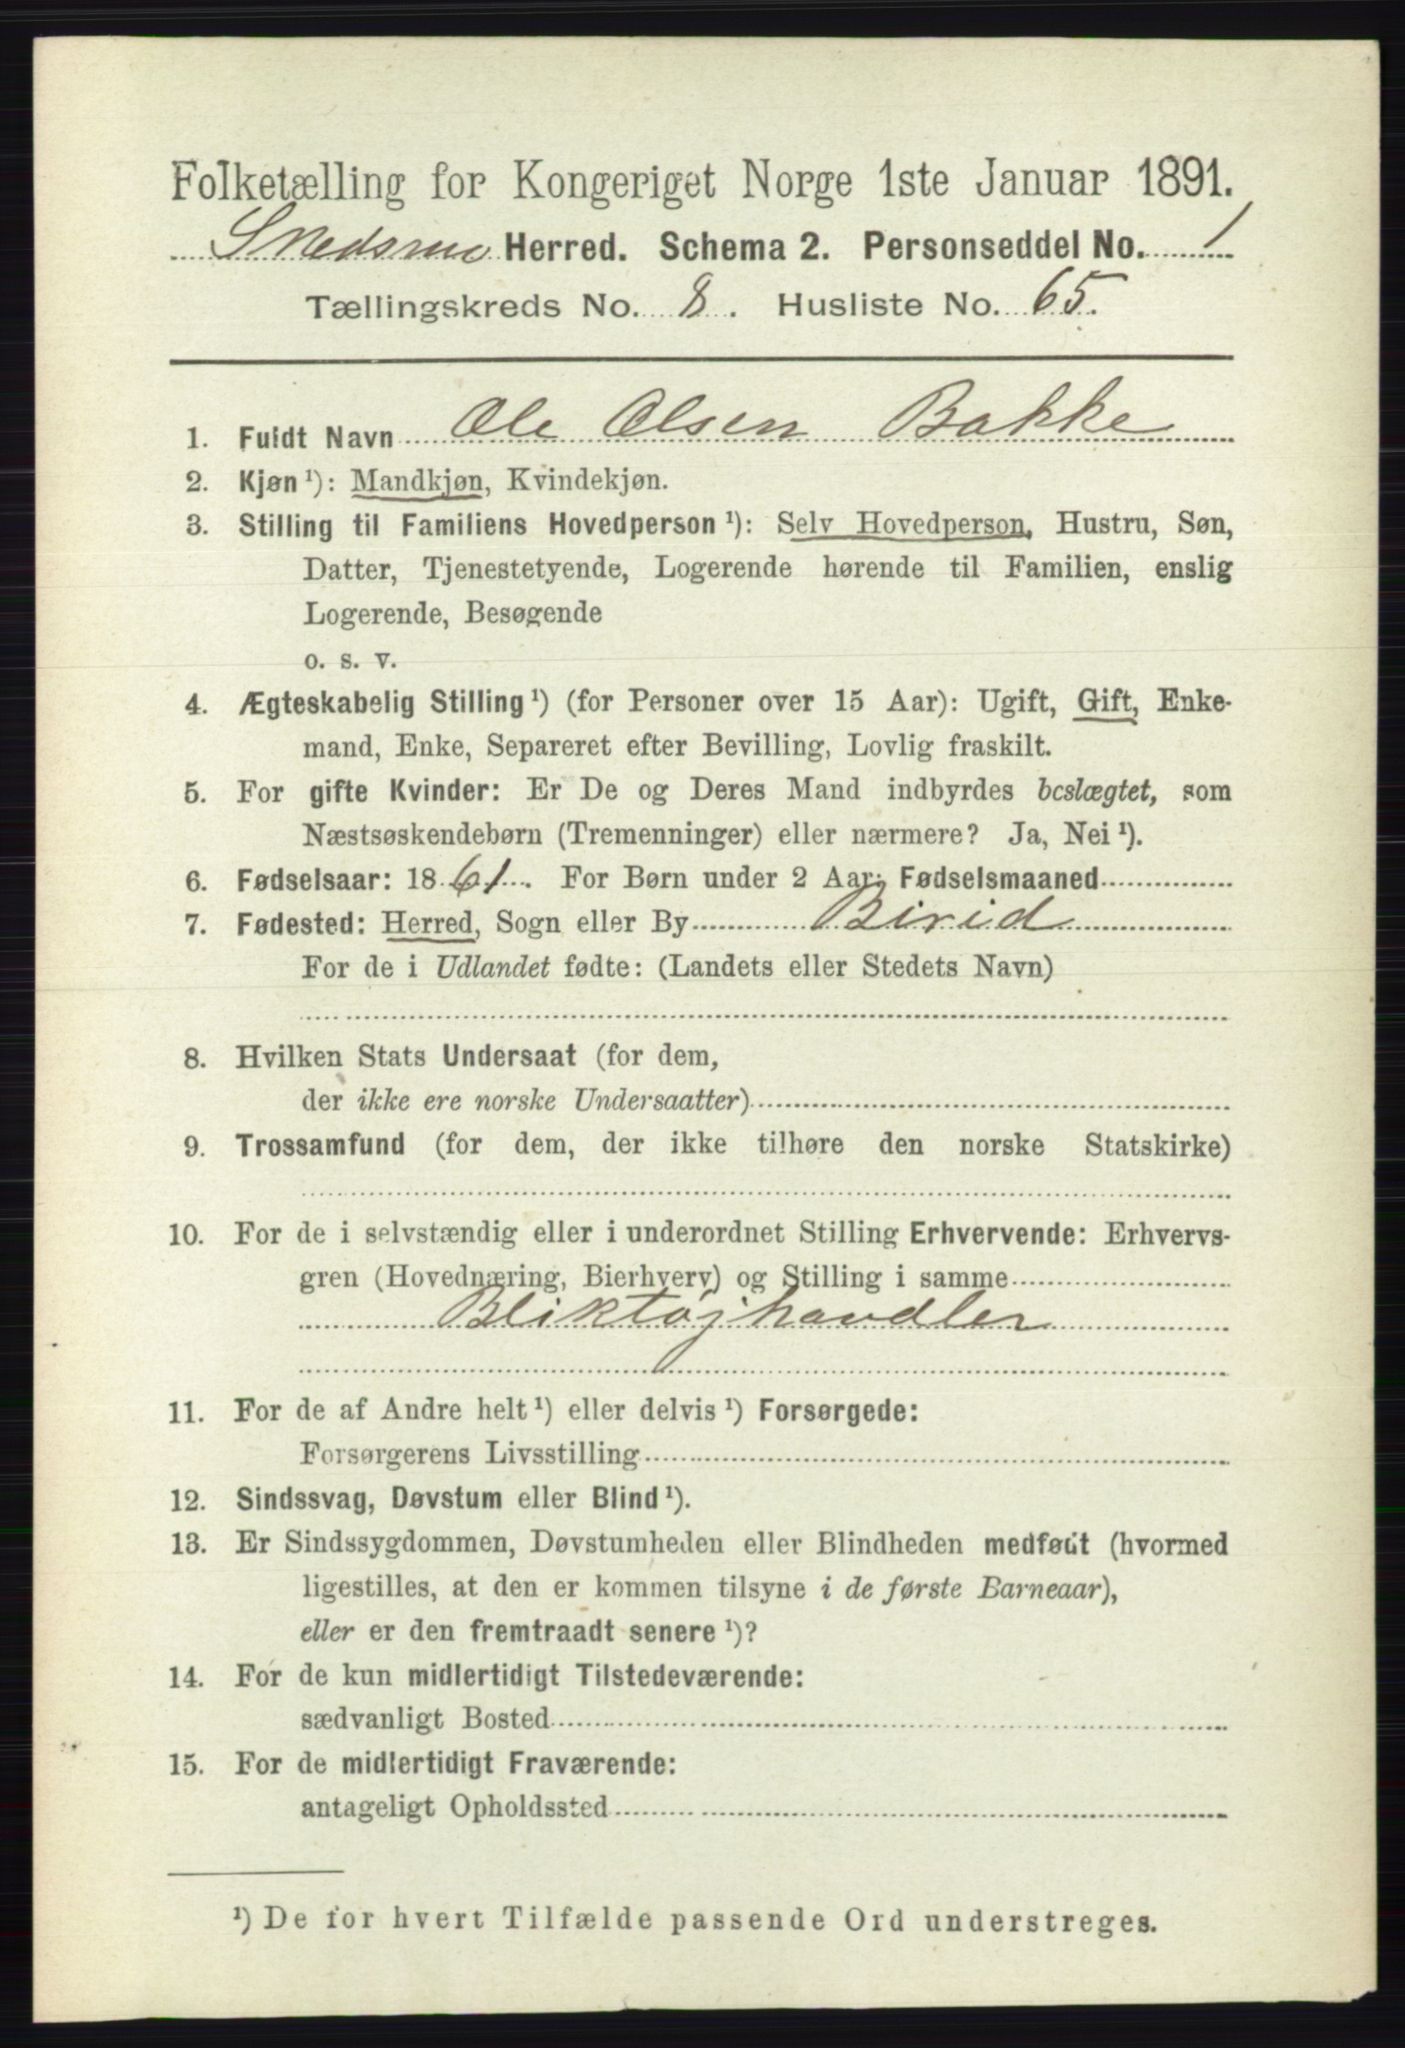 Folketælling for Kongeriget Norge 1ste Januar 1891.
Herred. Schema 2. Personseddel No. 1
Tællingskreds No. 8. Husliste No. 65.
1. Fuldt Navn Ole Olsen Bakke
2. Kjøn ¹): Mandkjøn, Kvindekjøn.
3. Stilling til Familiens Hovedperson ¹): Selv Hovedperson, Hustru, Søn,
Datter, Tjenestetyende, Logerende hørende til Familien, enslig
Logerende, Besøgende
o. s. v.
4. Ægteskabelig Stilling ¹) (for Personer over 15 Aar): Ugift, Gift, Enke-
mand, Enke, Separeret efter Bevilling, Lovlig fraskilt.
5. For gifte Kvinder: Er De og Deres Mand indbyrdes beslægtet, som
Næstsøskendebørn (Tremenninger) eller nærmere? Ja, Nei ¹).
6. Fødselsaar: 1861. For Børn under 2 Aar: Fødselsmaaned
7. Fødested: Herred, Sogn eller By Birid
For de i Udlandet fødte: (Landets eller Stedets Navn)
8. Hvilken Stats Undersaat (for dem,
der ikke ere norske Undersaatter)
9. Trossamfund (for dem, der ikke tilhøre den norske Statskirke)
10. For de i selvstændig eller i underordnet Stilling Erhvervende: Erhvervs-
gren (Hovednæring, Bierhverv) og Stilling i samme
Bliktøjhandler
11. For de af Andre helt ¹) eller delvis ¹) Forsørgede:
Forsørgerens Livsstilling
12. Sindssvag, Døvstum eller Blind ¹).
13. Er Sindssygdommen, Døvstumheden eller Blindheden medfødt (hvormed
ligestilles, at den er kommen tilsyne i de første Barneaar),
eller er den fremtraadt senere ¹)?
14. For de kun midlertidigt Tilstedeværende:
sædvanligt Bosted
15. For de midlertidigt Fraværende:
antageligt Opholdssted
¹) De for hvert Tilfælde passende Ord understreges.